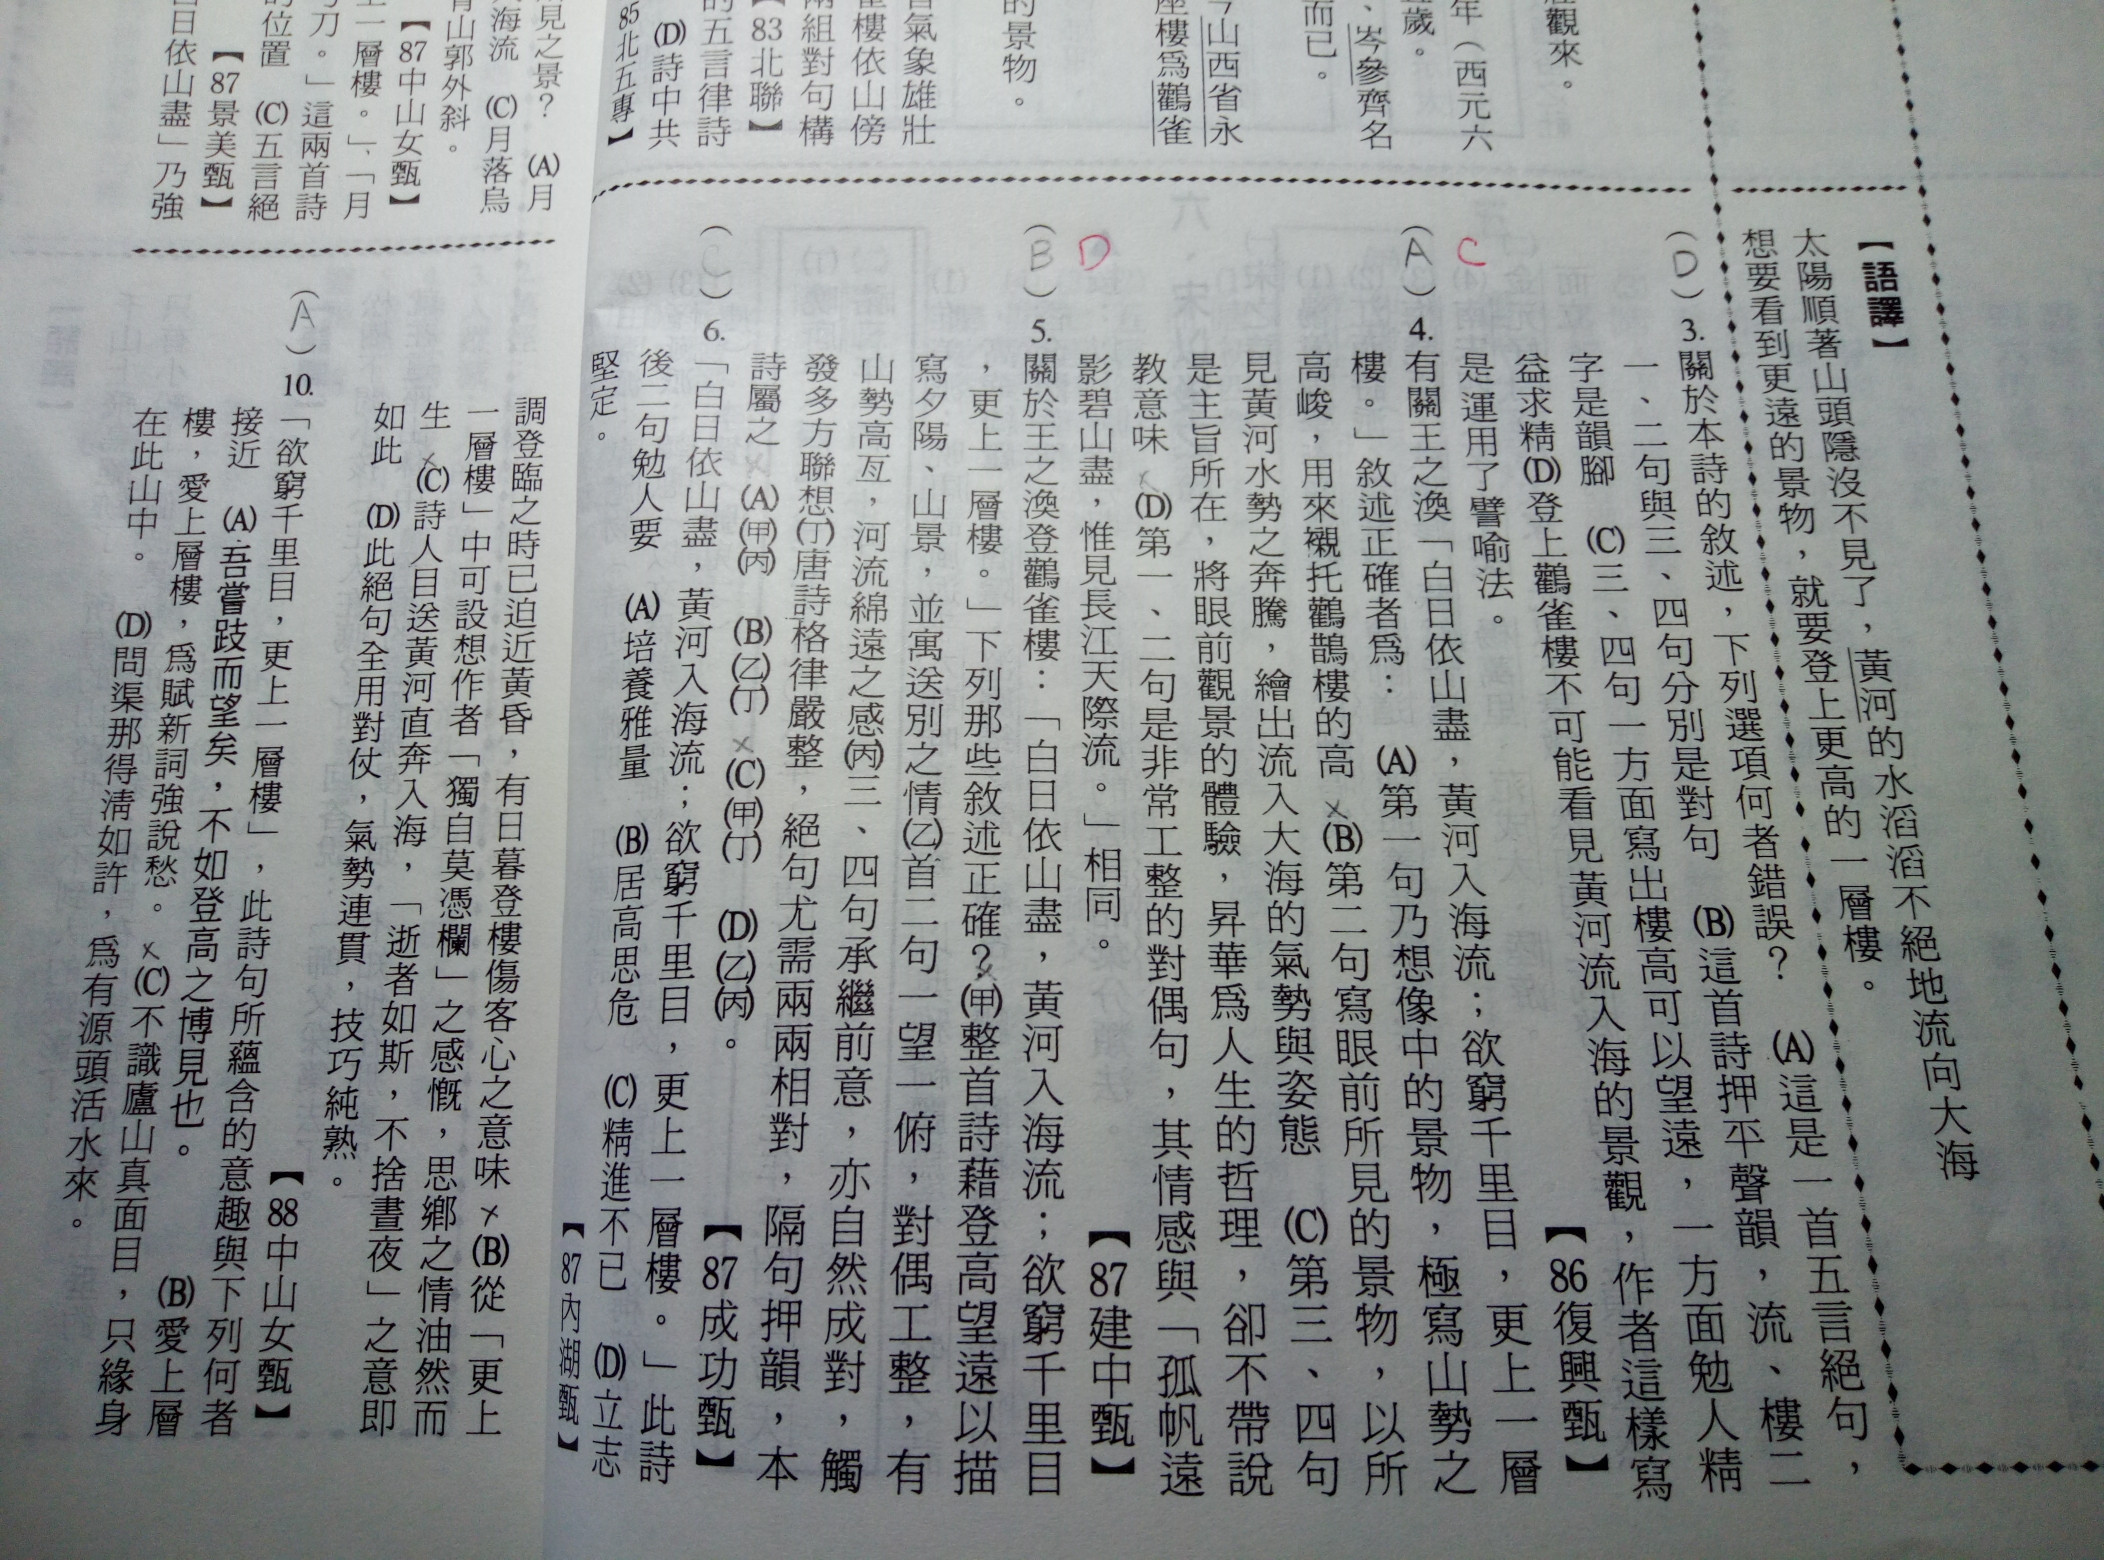 壯觀來。
年（西元六
歲。
、岑參齊名
而已。
山西省永
座樓為鸛雀
的景物。
氣象雄壯
樓依山傍
兩組對句構
【83北聯】
的五言律詩
(D)詩中共
85北五專】
【語譯】
太陽順著山頭隱沒不見了，黃河的水滔滔不絕地流向大海
想要看到更遠的景物，就要登上更高的一層樓。
（D）3.關於本詩的敘述，下列選項何者錯誤？　(A)這是一首五言絕句，
一、二句與三、四句分別是對句　(B)這首詩押平聲韻，流、樓二
字是韻腳　(C)三、四句一方面寫出樓高可以望遠，一方面勉人精
益求精(D)登上鸛雀樓不可能看見黃河流入海的景觀，作者這樣寫
是運用了譬喻法。　【86復興甄】
C
（A）4.有關王之渙「白日依山盡，黃河入海流；欲窮千里目，更上一層
樓。」敘述正確者為：　(A)第一句乃想像中的景物，極寫山勢之
高峻，用來襯托鸛鵲樓的高　(B)第二句寫眼前所見的景物，以所
見黃河水勢之奔騰，繪出流入大海的氣勢與姿態　(C)第三、四句
是主旨所在，將眼前觀景的體驗，昇華為人生的哲理，卻不帶說
教意味　(D)第一、二句是非常工整的對偶句，其情感與「孤帆遠
影碧山盡，惟見長江天際流。」相同。　【87建中甄】
D
（B）5.關於王之渙登鸛雀樓：「白日依山盡，黃河入海流；欲窮千里目
，更上一層樓。」下列那些敘述正確？(甲)整首詩藉登高望遠以描
寫夕陽、山景，並寓送別之情(乙)首二句一望一俯，對偶工整，有
山勢高亙，河流綿遠之感(丙)三、四句承繼前意，亦自然成對，觸
發多方聯想(丁)唐詩格律嚴整，絕句尤需兩兩相對，隔句押韻，本
詩屬之　(A)(甲)(丙)　(B)(乙)(丁)　(C)(甲)(丁)　(D)(乙)(丙)。　【87成功甄】
（C）6.「白日依山盡，黃河入海流；欲窮千里目，更上一層樓。」此詩
後二句勉人要　(A)培養雅量　(B)居高思危　(C)精進不已　(D)立志
堅定。　【87內湖甄】
所見之景？　(A)月
海流　(C)月落烏
青山郭外斜。
【87中山女甄】
一層樓。」、「月
刀。」這兩首詩
的位置　(C)五言絕
【87景美甄】
白日依山盡」乃強
調登臨之時已迫近黃昏，有日暮登樓傷客心之意味　(B)從「更上
一層樓」中可設想作者「獨自莫憑欄」之感慨，思鄉之情油然而
生　(C)詩人目送黃河直奔入海，「逝者如斯，不捨晝夜」之意即
如此　(D)此絕句全用對仗，氣勢連貫，技巧純熟。
【88中山女甄】
（A）10.「欲窮千里目，更上一層樓」，此詩句所蘊含的意趣與下列何者
接近　(A)吾嘗跂而望矣，不如登高之博見也。　(B)愛上層
樓，愛上層樓，為賦新詞強說愁。　(C)不識廬山真面目，只緣身
在此山中。　(D)問渠那得清如許，為有源頭活水來。